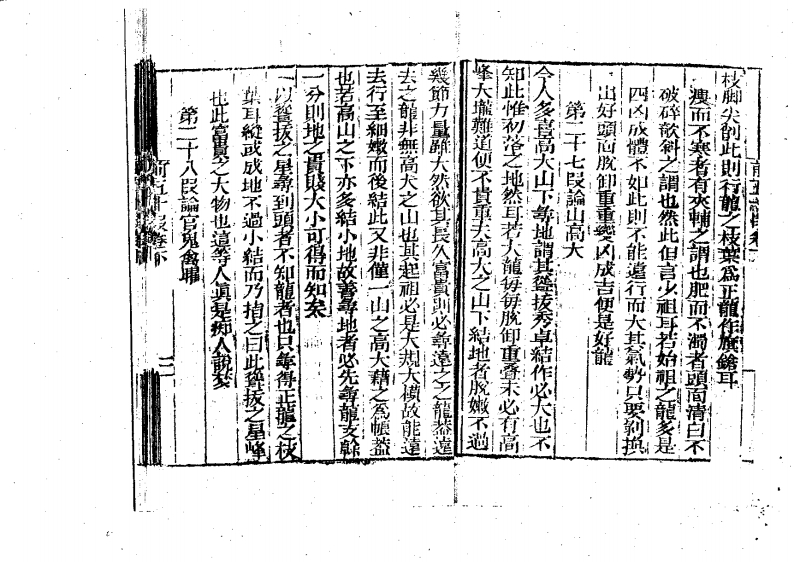 枝脚尖削此則行龍之枝葉爲正龍作旗鎗耳
瘦而不寒者有夾輔之謂也肥而不濁者頭面清白不
破碎欹斜之謂也然此但言少祖耳若始祖之龍多是
四凶成體不如此則不能遠行而大其氣勢只要到換
出好頭面脫卸重重變凶成吉便是好龍
第二十七段論山高大
今人多喜高大山下尋地謂其聳拔秀卓結作必大也不
知此惟初落之地然耳若大龍每每脫卸重叠未必有高
峰大壠難道便不貴重夫高大之山下結地者脫嫩不過
幾節力量雖大然欲其長久富貴則必尋遠之之龍葢遠
去之龍非無高大之山也其起祖必是大規大模故能遠
去行至細嫩而後結此又非僅一山之高大藉之爲帳蓋
也若高山之下亦多結小地故善尋地者必先尋龍支幹
一分則地之貴賤大小可得而知矣
一以聳拔之星尋到頭者不知龍者也只尋得正龍之枝
葉耳縱或成地不過小結而乃指之曰此聳拔之星峰
也此富貴之大物也這等人眞是痴人說夢
第二十八段論官鬼禽曜